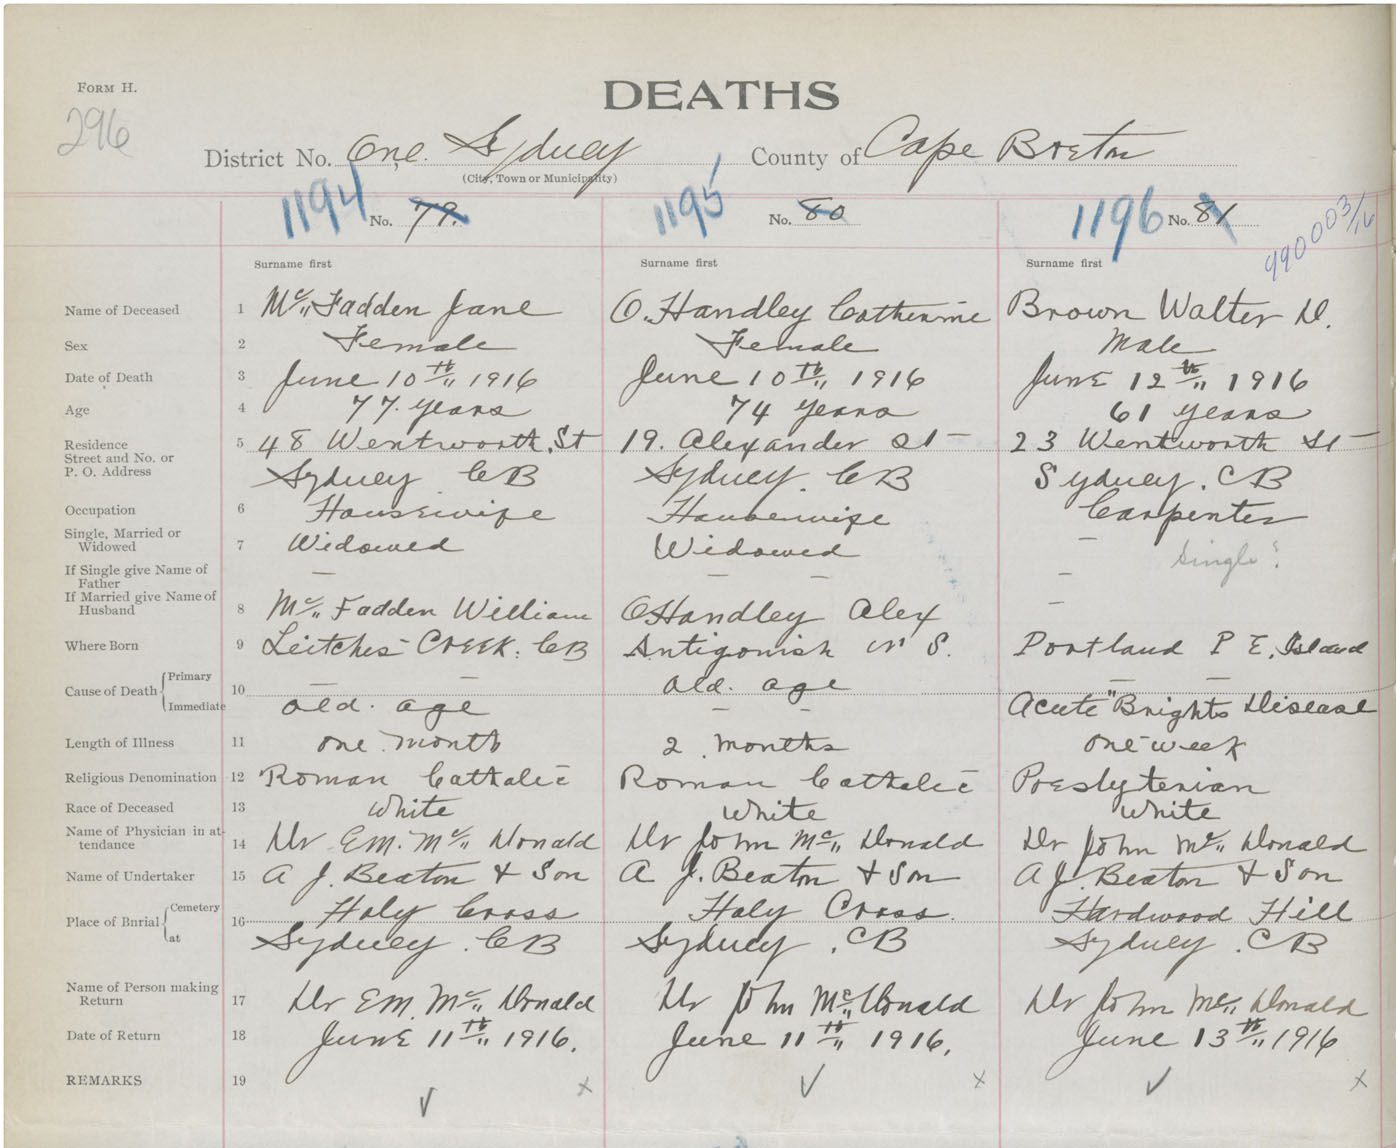 FORM H.
DEATHS
296
District No. One. Sydney County of Cape Breton
(City, Town or Municipality)
1194 No. 79. 1195 No. 80 1196 No. 81
990003/16
Surname first Surname first Surname first
Name of Deceased 1 Mc,, Fadden Jane O. Handley Catherine Brown Walter D.
Sex 2 Female Female Male
Date of Death 3 June 10th,, 1916 June 10th,, 1916 June 12th,, 1916
Age 4 77. years 74 years 61 years
Residence 5 48 Wentworth. St 19. Alexander St 23 Wentworth St
Street and No. or
P. O. Address Sydney CB Sydney. CB Sydney. CB
Occupation 6 Housewife Housewife Carpenter
Single, Married or
Widowed 7 Widowed Widowed – Single?
If Single give Name of
Father — — — –
If Married give Name of
Husband 8 Mc,, Fadden William OHandley Alex –
Where Born 9 Leitches Creek. CB Antigonish N S. Portland P E. Island
Cause of Death Primary 10 — — Old. age — —
Immediate Old. age – – Acute "Brights Disease
Length of Illness 11 one. month 2 months one week
Religious Denomination 12 Roman Catholic Roman Catholic Presbyterian
Race of Deceased 13 White White White
Name of Physician in at-
tendance 14 Dr EM. Mc,, Donald Dr John Mc,, Donald Dr John Mc,, Donald
Name of Undertaker 15 A J. Beaton & Son A J. Beaton & Son A J. Beaton & Son
Place of Burial Cemetery 16 Holy Cross Holy Cross. Hardwood Hill
at Sydney. CB Sydney. CB Sydney. CB
Name of Person making
Return 17 Dr EM. Mc,, Donald Dr John Mc,, Donald Dr John Mc,, Donald
Date of Return 18 June 11th,, 1916. June 11th,, 1916. June 13th,, 1916
REMARKS 19 ✓ x ✓ x ✓ x